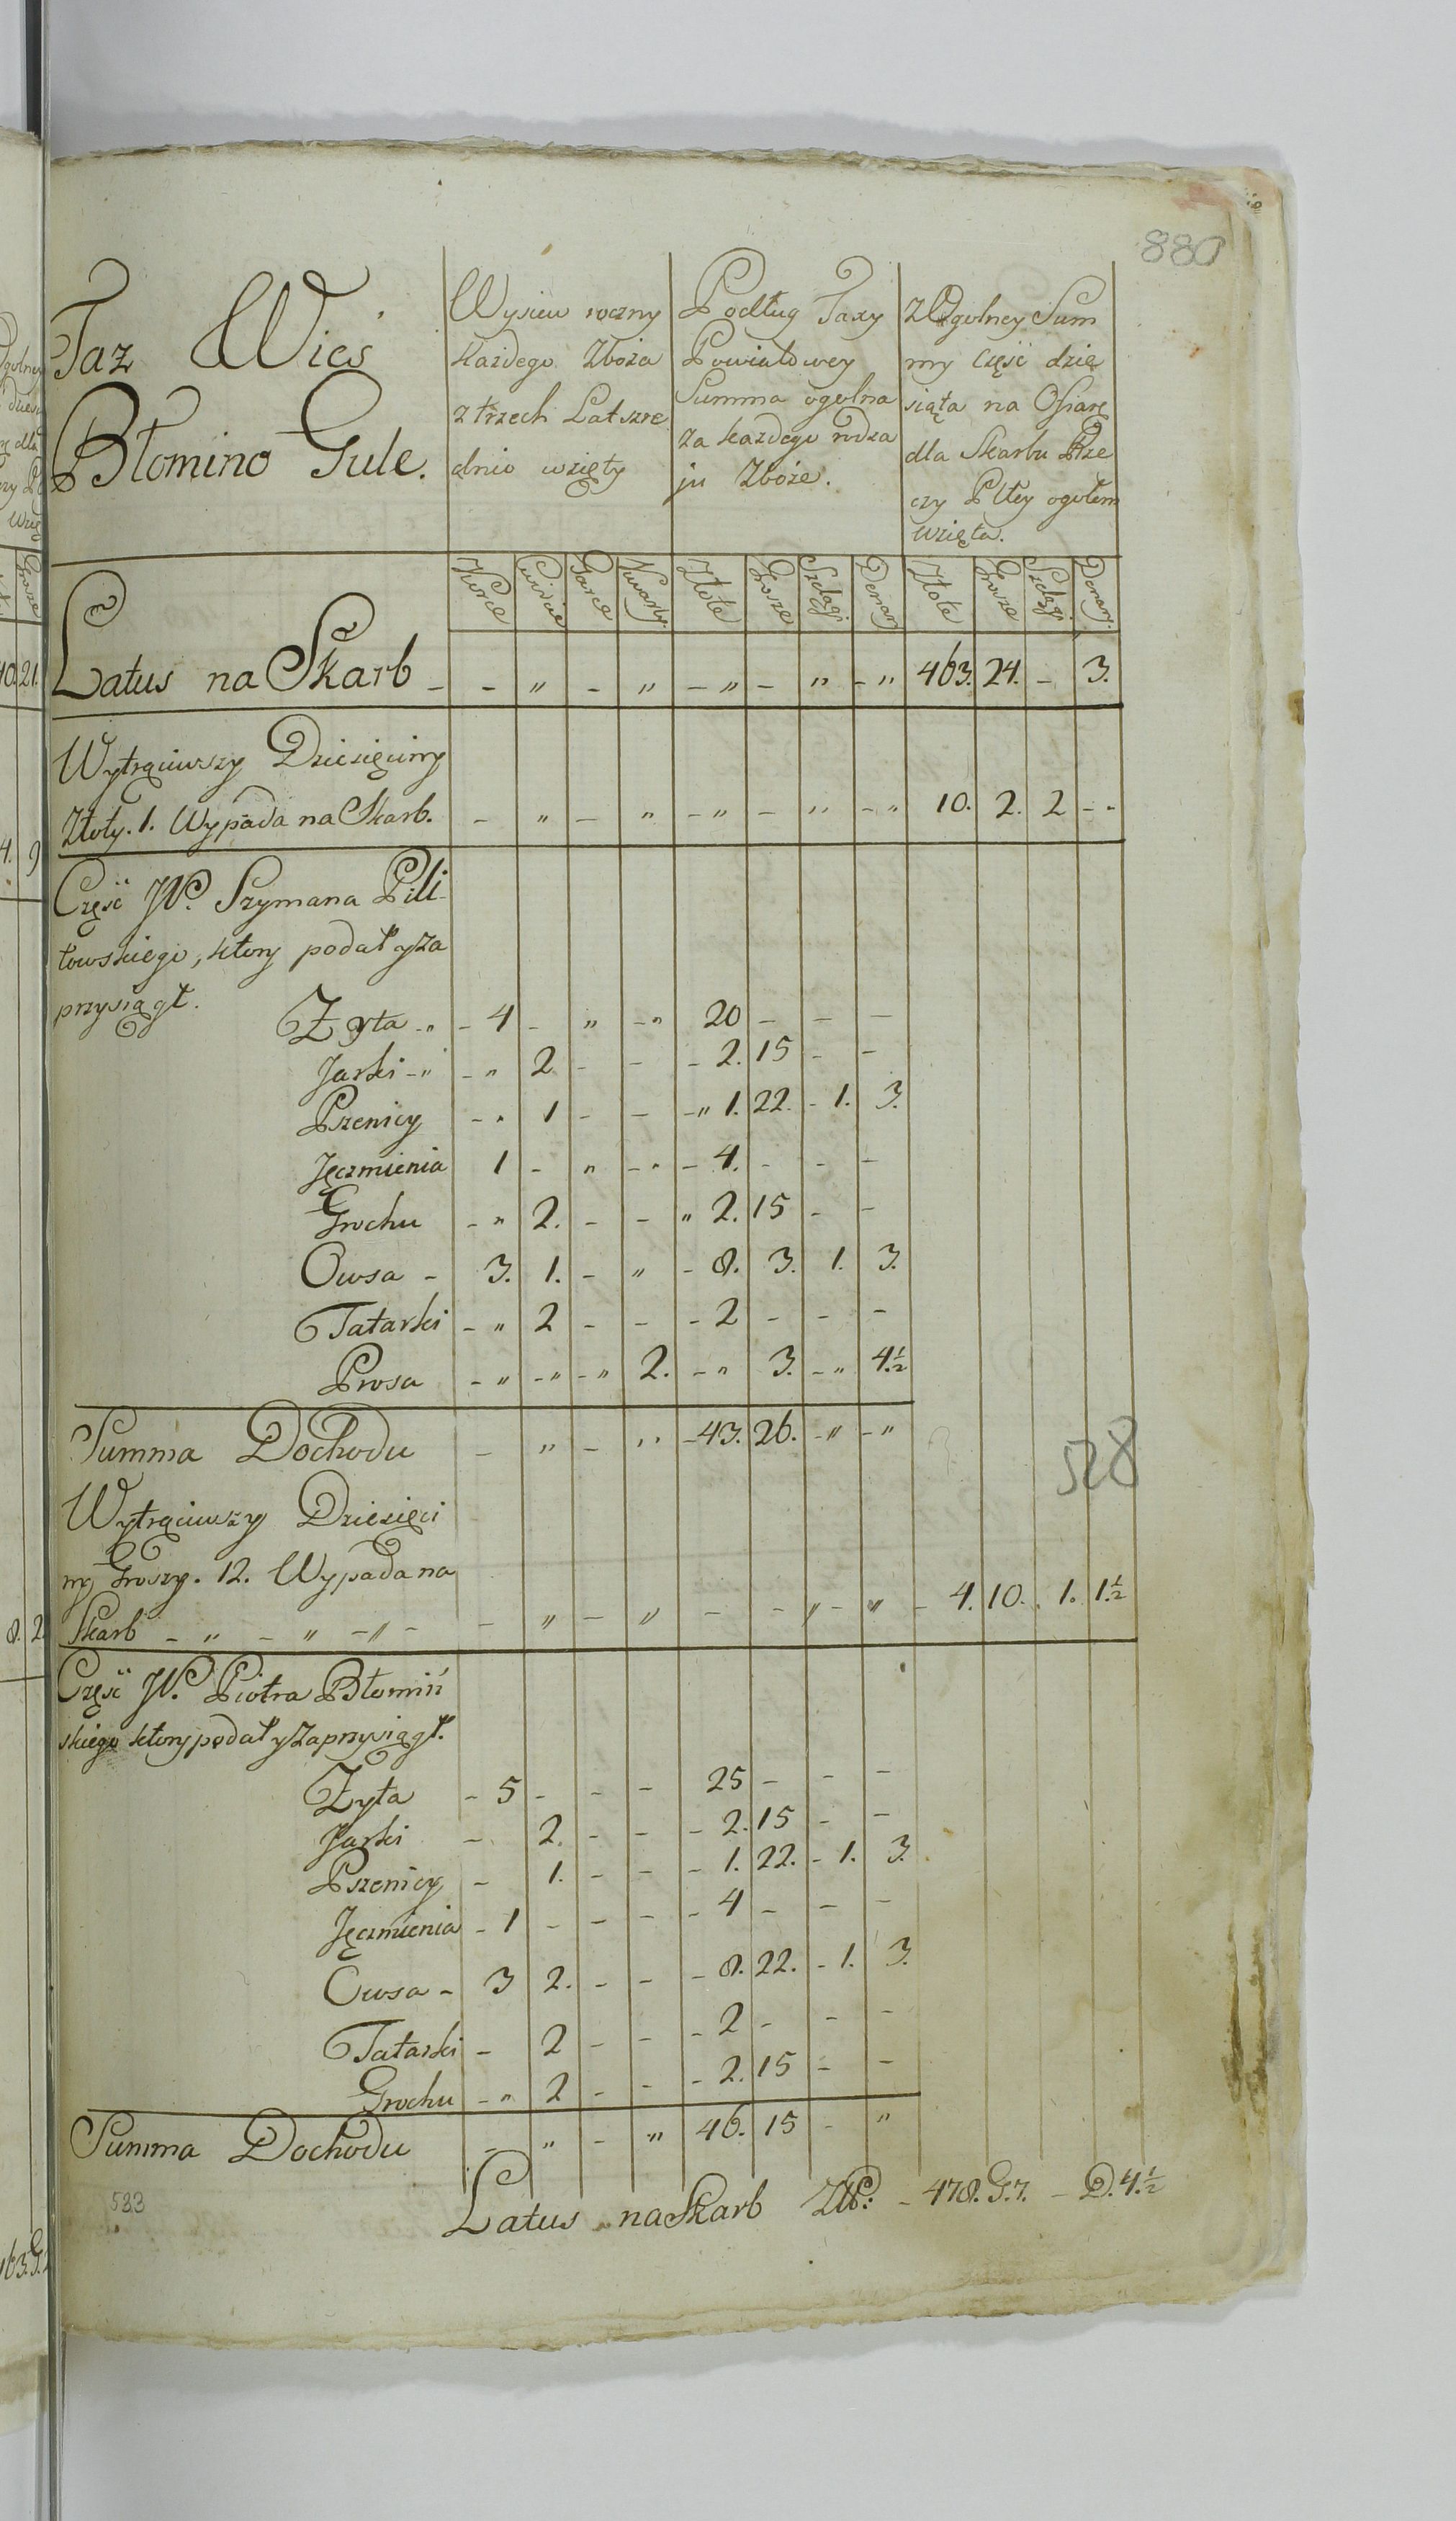 880
Taz Wieś
Błomino Gule.
Wysiew roczny
każdego Zboża
z trzech Lat szre
dnio wzięty
Podług Taxy
Powiatowey
Summa ogolna
za każdego rodza
ju Zboże.
z Ogolney Sum
my część dzie
siąta na Ofiarę
dla Skarbu Rze
czy Pltey ogołem
wzięta.
Korce Cwierci Garce Kwarty. Złote Grosze Szelągi Denary Złote Grosze Szelągi Denary.
Latus na Skarb - - „ - „ - „ - „ - „ 463. 24. - 3.
Wytrąciwszy Dziesięciny
Złoty. 1. Wypada na Skarb. - „ - „ - „ - „ - „ 10. 2. 2 - -
Część JP. Szymana Pili
towskiego, ktory podał y za
przysiągł.
Żyta - „ - 4 - „ - „ 20 - - -
Jarki - „ - „ 2 - - - 2. 15 - -
Pszenicy - „ 1 - - - „ 1. 22. - 1. 3.
Jęczmienia 1 - „ - „ - 4. - - -
Grochu - „ 2. - - „ 2. 15 - -
Owsa - 3. 1. - „ - 8. 3. 1. 3.
Tatarki - „ 2 - - - 2 - - -
Prosa - „ - „ - „ 2. - „ 3. - „ 4.½
Summa Dochodu - „ - „ - 43. 26. - „ - „
528
Wytrąciwszy Dziesięci
ny Groszy. 12. Wypada na
Skarb - „ - „ - „ - - „ - „ - - „ - „ - 4. 10. . 1. 1.½
Część JP. Piotra Błomiń
skiego ktory podał y zaprzysiągł.
Żyta - 5 - - - 25 - - -
Jarki - 2. - - - 2. 15 - -
Pszenicy - 1. - - - 1. 22. - 1. 3.
Jęczmienia - 1 - - - - 4 - - -
Owsa - 3 2. - - - 8. 22. - 1. 3.
Tatarki - 2 - - - 2 - - -
Grochu - „ 2 - - - 2. 15 - -
Summa Dochodu - „ - „ 46. 15 - „
Latus na Skarb ZłP: - 478. G. 7. - D. 4.½
583